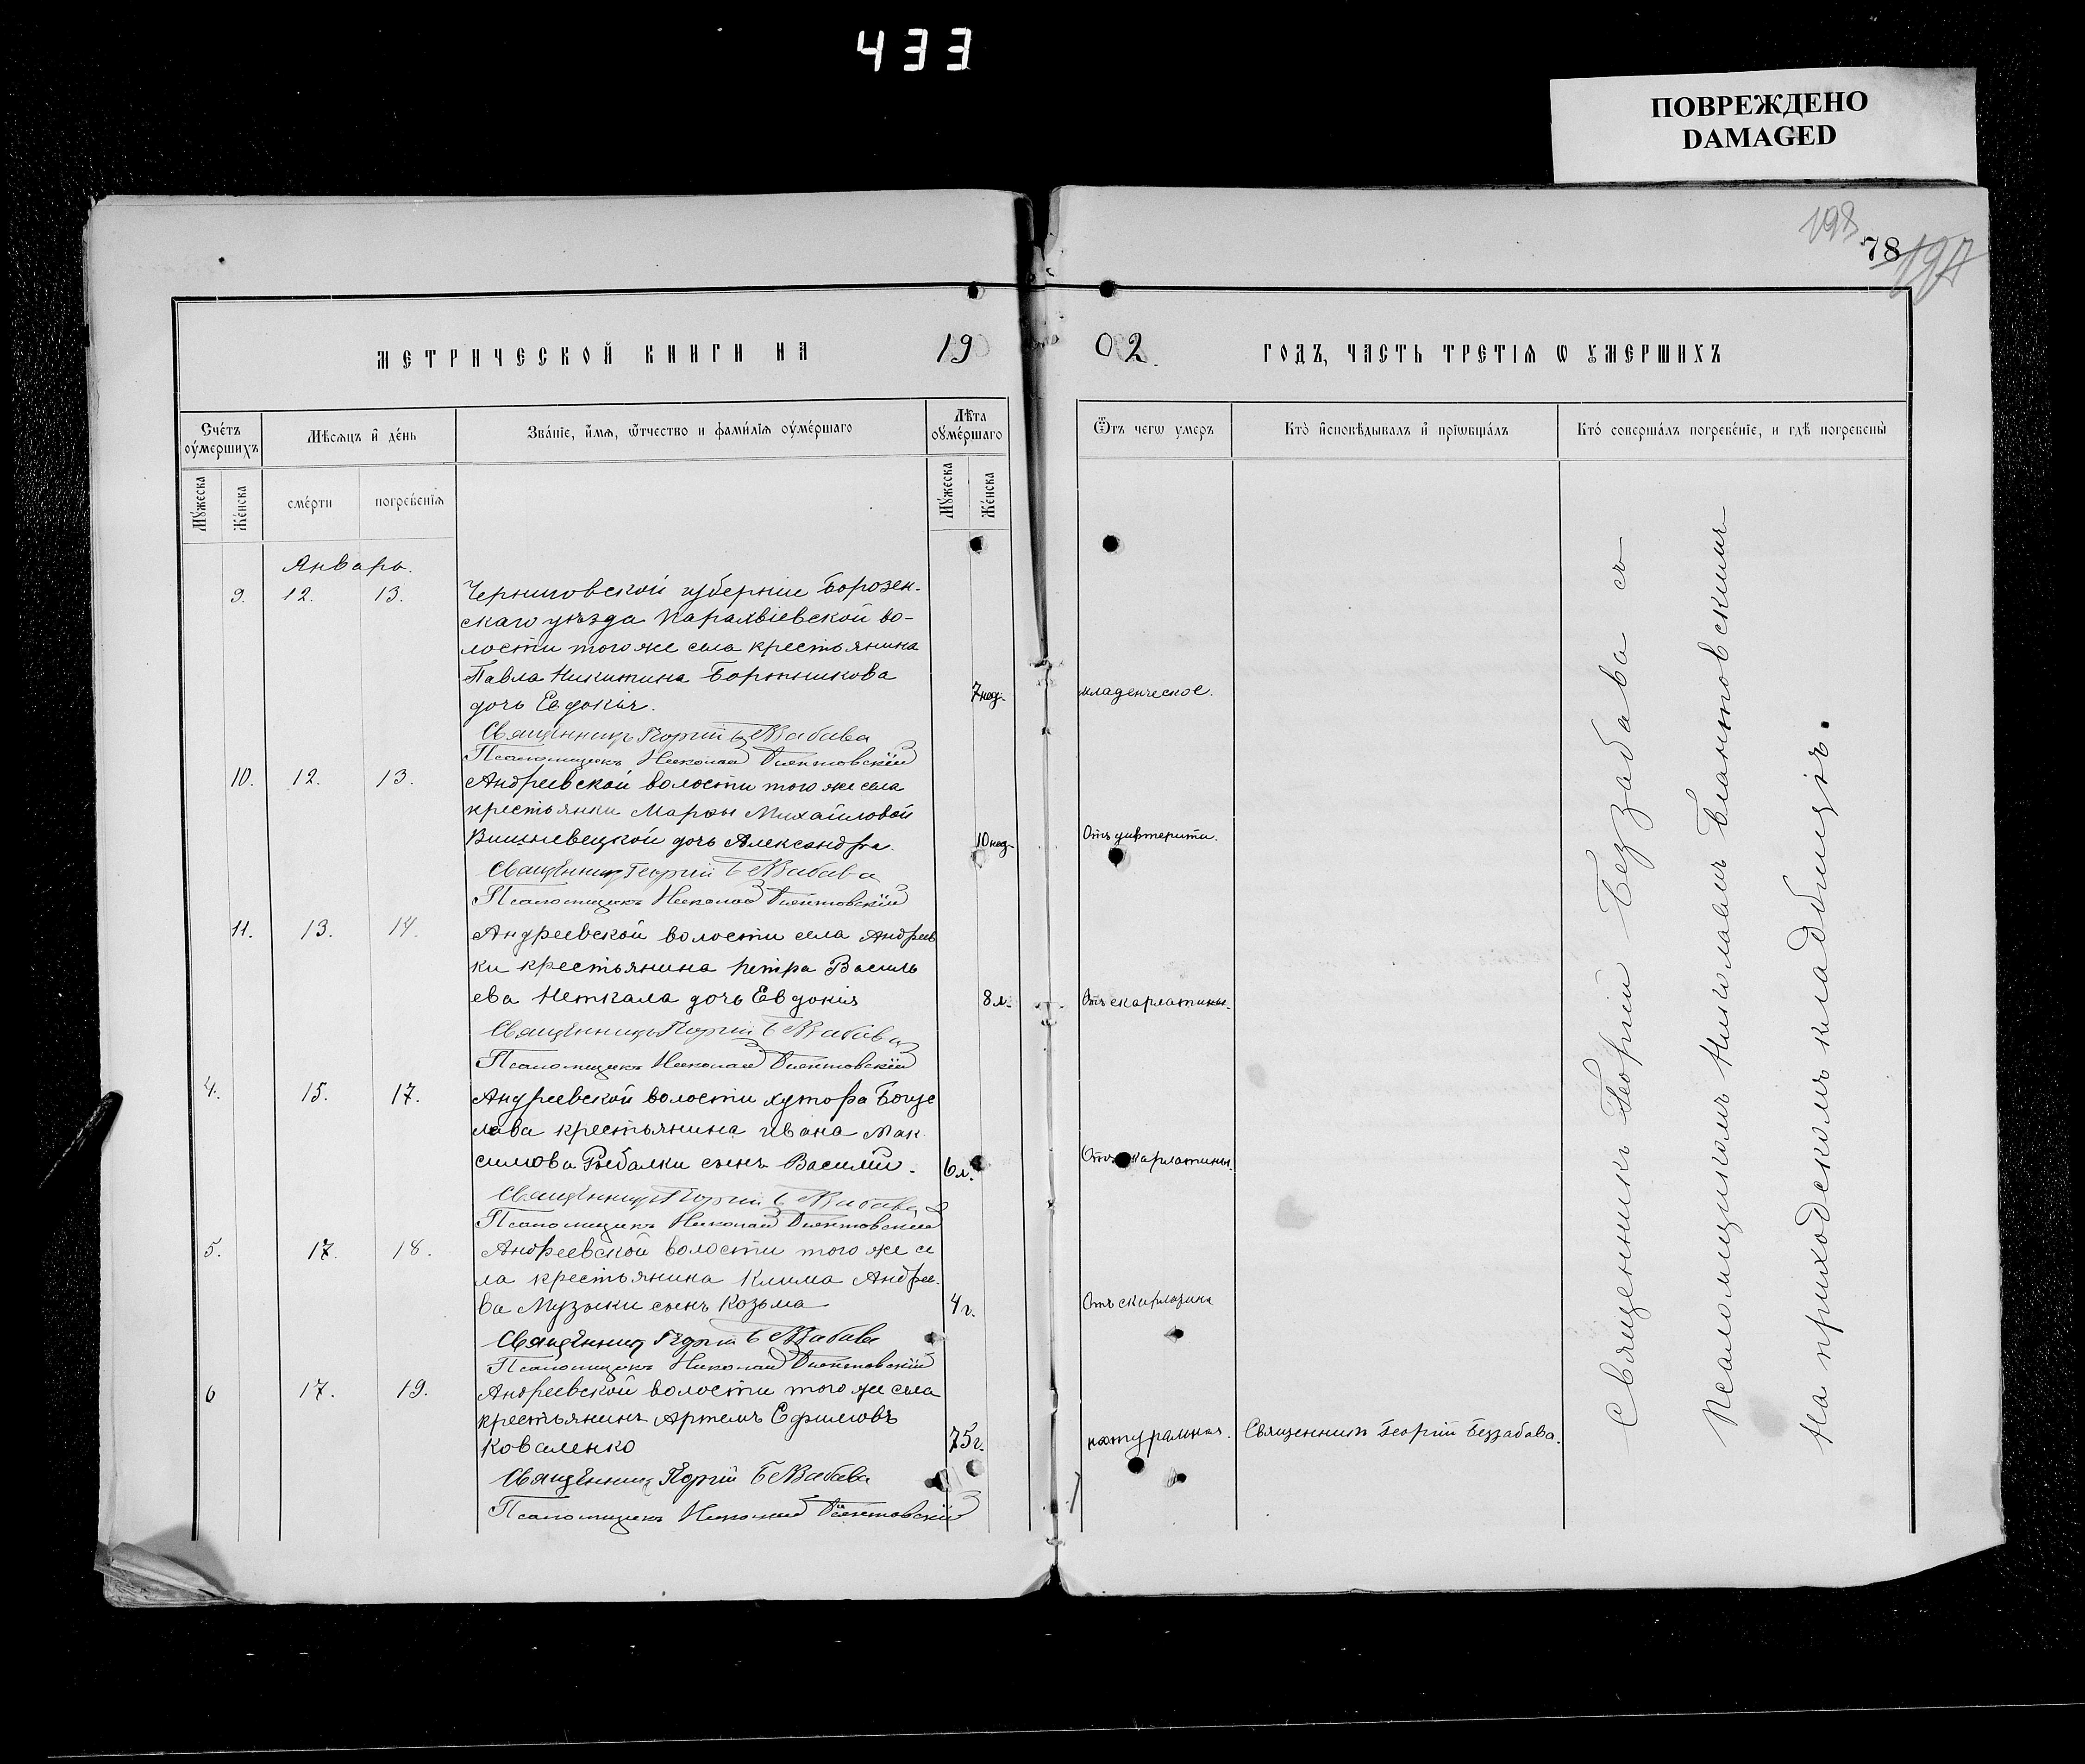 433
ПОВРЕЖДЕНО
DAMAGED
198
78
197
МЕТРИЧЕСКОЙ КНИГИ НА 19
02. ГОДЪ, ЧАСТЬ ТРЕТІѦ Ѡ УМЕРШИХЪ
Счетъ оумершихъ
Мѣсяцъ и день
Званіе, имя, ѿчество и фамилія оумершаго
Лѣта оумершаго
Ѿъ чегѡ умеръ
Кто исповѣдывалъ и пріѡбщалъ
Кто совершалъ погребеніе, и гдѣ погребены
Мужеска
Женска
смерти
погребенія
Мужеска
Женска
Январь.
9. 12. 13. Черниговской губерніи Борзен-
скаго уѣзда Парафіевской во-
лости того же села крестьянина
Павла Никитина Бортникова
дочь Евдокія. 7 нед. младенческое.
Священникъ Георгій Беззабава
Псаломщикъ Николай
10. 12. 13. Андреевской волости того же села
крестьянки Марѳы Михайловой
Вишневецкой дочь Александра. 10 нед. Отъ дифтерита.
Священникъ Георгій Беззабава
Псаломщикъ Николай
11. 13. 14. Андреевской волости села Андреев
ки крестьянина Петра Василь
ева Неткала дочь Евдокія 8 л. Отъ скарлатины.
Священникъ Георгій Беззабава
Псаломщикъ Николай
4. 15. 17. Андреевской волости хутора
крестьянина Ивана Мак
симова Рыбалки сынъ Василій. 6 л. Отъ скарлатины.
Священникъ Георгій Беззабава
Псаломщикъ Николай
5. 17. 18. Андреевской волости того же се
ла крестьянина Клима Андрее-
ва Музыки сынъ Козьма 4 г. Отъ
Священникъ Георгій Беззабава
Псаломщикъ Николай
6 17. 19. Андреевской волости того же села
крестьянинъ Артемъ Ефимовъ
Коваленко 75 г. натуральная. Священникъ Георгій Беззабава.
Священникъ Георгій Беззабава
Псаломщикъ Николай
Священникъ Георгій Беззабава съ
Псаломщикомъ Николаемъ
На приходскомъ кладбищѣ.